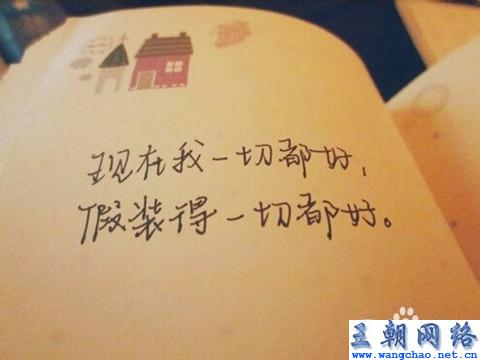 现在我一切都好，
假装得一切都好。
王朝网络
www.wangchao.net.cn